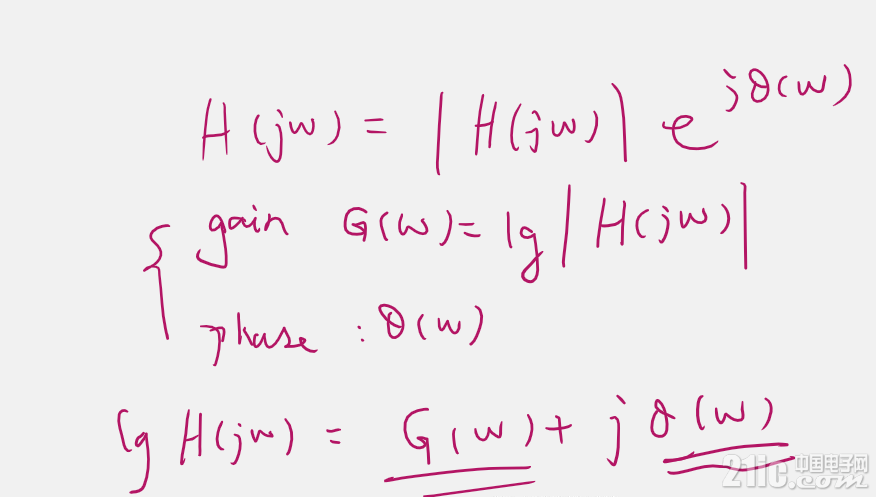 H(jw) = |H(jw)| e^{jθ(w)}
{ gain G(w) = lg |H(jw)|
phase : θ(w)
lg H(jw) = G(w) + j θ(w)
21ic 中国电子网
.com